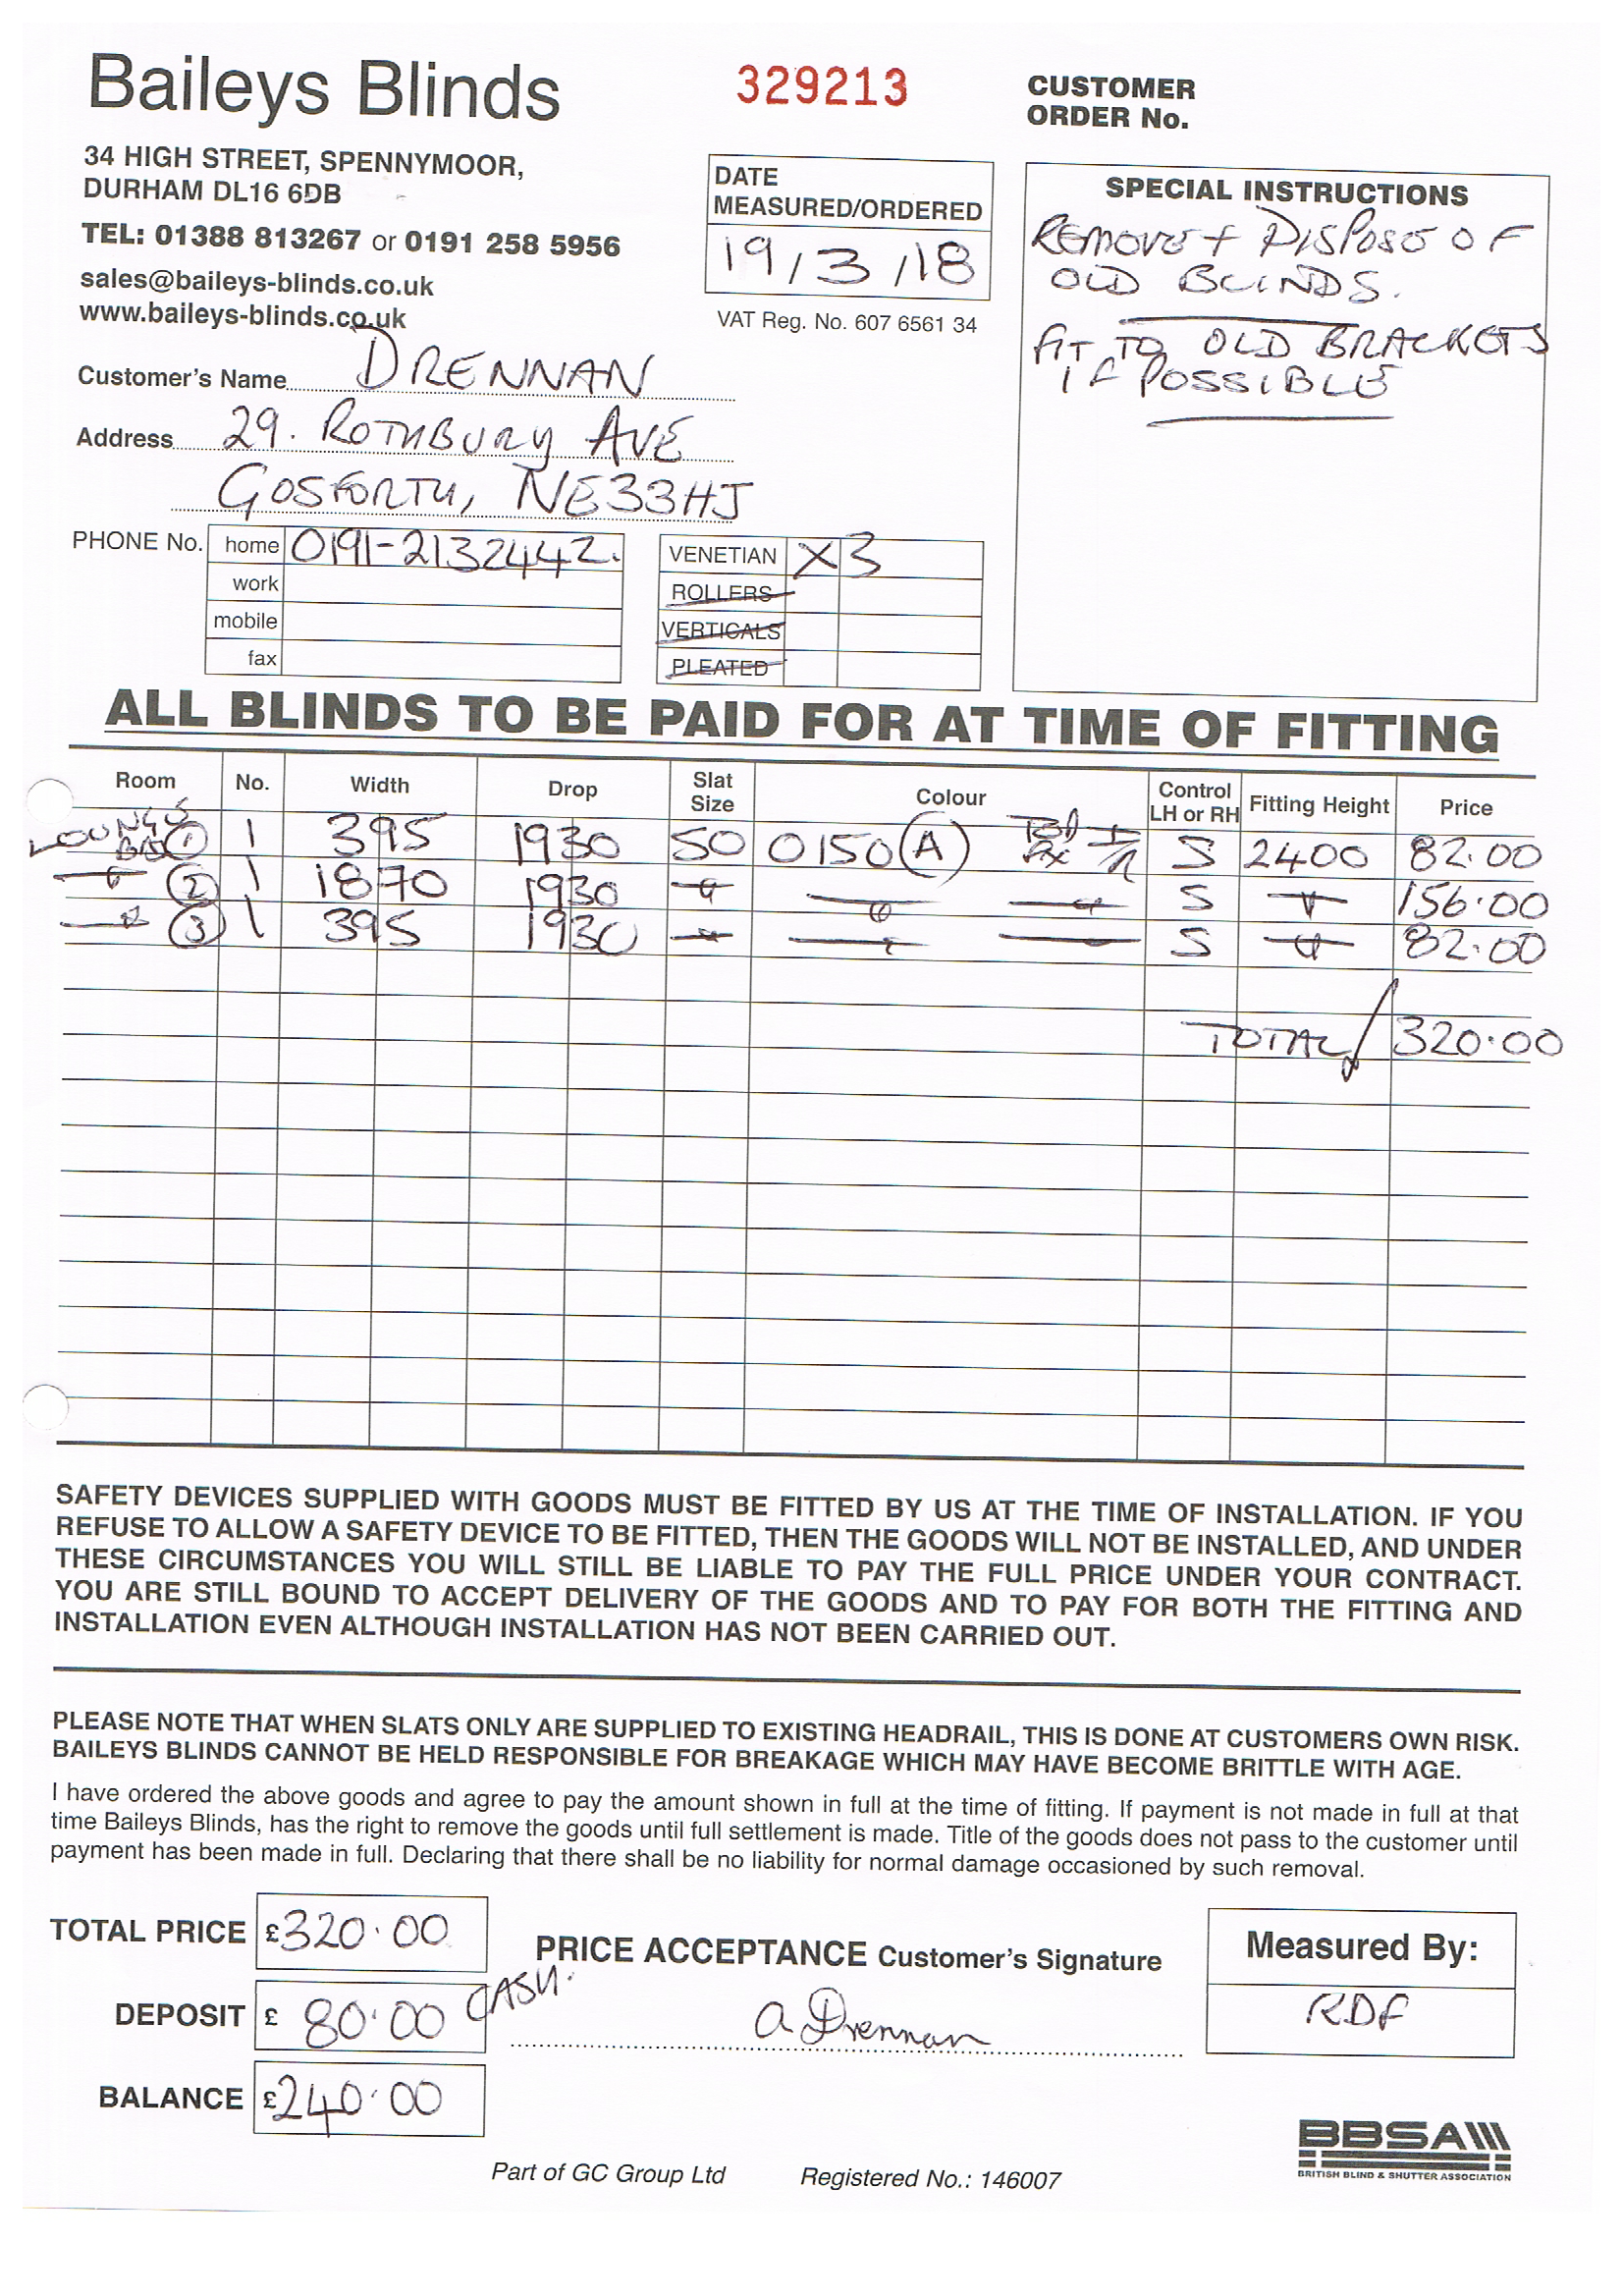 Baileys Blinds
329213
CUSTOMER
ORDER No.
34 HIGH STREET, SPENNYMOOR,
DURHAM DL16 6DB
TEL: 01388 813267 or 0191 258 5956
sales@baileys-blinds.co.uk
www.baileys-blinds.co.uk
DATE
MEASURED/ORDERED
19/3/18
VAT Reg. No. 607 6561 34
SPECIAL INSTRUCTIONS
REMOVE + DISPOSE OF
OLD BLINDS.
FIT TO OLD BRACKETS
IF POSSIBLE
Customer's Name DRENNAN
Address 29. ROTHBURY AVE
GOSFORTH, NE33HJ
PHONE No. home 0191-2132442.
work
mobile
fax
VENETIAN X 3
ROLLERS
VERTICALS
PLEATED
ALL BLINDS TO BE PAID FOR AT TIME OF FITTING
Room No. Width Drop Slat Size Colour Control LH or RH Fitting Height Price
LOUNGE BAY 1 1 395 1930 50 0150 A S 2400 82.00
2 1 1870 1930 S 156.00
3 1 395 1930 S 82.00
TOTAL 320.00
SAFETY DEVICES SUPPLIED WITH GOODS MUST BE FITTED BY US AT THE TIME OF INSTALLATION. IF YOU
REFUSE TO ALLOW A SAFETY DEVICE TO BE FITTED, THEN THE GOODS WILL NOT BE INSTALLED, AND UNDER
THESE CIRCUMSTANCES YOU WILL STILL BE LIABLE TO PAY THE FULL PRICE UNDER YOUR CONTRACT.
YOU ARE STILL BOUND TO ACCEPT DELIVERY OF THE GOODS AND TO PAY FOR BOTH THE FITTING AND
INSTALLATION EVEN ALTHOUGH INSTALLATION HAS NOT BEEN CARRIED OUT.
PLEASE NOTE THAT WHEN SLATS ONLY ARE SUPPLIED TO EXISTING HEADRAIL, THIS IS DONE AT CUSTOMERS OWN RISK.
BAILEYS BLINDS CANNOT BE HELD RESPONSIBLE FOR BREAKAGE WHICH MAY HAVE BECOME BRITTLE WITH AGE.
I have ordered the above goods and agree to pay the amount shown in full at the time of fitting. If payment is not made in full at that
time Baileys Blinds, has the right to remove the goods until full settlement is made. Title of the goods does not pass to the customer until
payment has been made in full. Declaring that there shall be no liability for normal damage occasioned by such removal.
TOTAL PRICE £320.00
PRICE ACCEPTANCE Customer's Signature
Measured By:
DEPOSIT £ 80.00 CASH.
a Drennan
RDF
BALANCE £240.00
BBSA
BRITISH BLIND & SHUTTER ASSOCIATION
Part of GC Group Ltd Registered No.: 146007